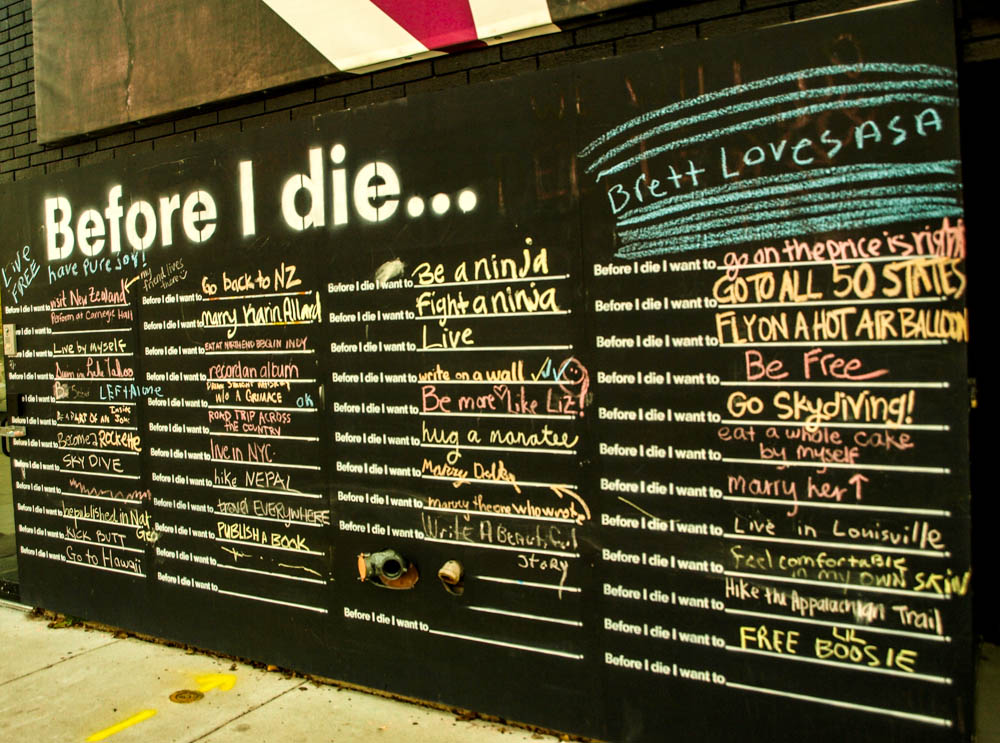 Before I die...
LIVE
FREE
have pure joy!
my
friend lives
there
Before I die I want to visit New Zealand
Perform at Carnegie Hall
Before I die I want to
Before I die I want to Live by myself
Before I die I want to
Before I die I want to LEFT Alone
Inside
Before I die I want to BE A PART OF AN JOKE
Before I die I want to Become a ROCKER
Before I die I want to SKYDIVE
Before I die I want to
Before I die I want to be published in Nat
Geo
Before I die I want to KICK BUTT
Before I die I want to Go to Hawaii
Before I die I want to Go back to NZ
Before I die I want to marry Karin Allard
Before I die I want to EAT AT NORTH END BBQ IN INDY
Before I die I want to record an album
DRINK STRAIGHT WHISKEY
Before I die I want to W/O A GRIMACE OK
ROAD TRIP ACROSS
Before I die I want to THE COUNTRY
Before I die I want to live in NYC
Before I die I want to hike NEPAL
Before I die I want to travel EVERYWHERE
Before I die I want to PUBLISH A BOOK
Before I die I want to
Before I die I want to
Before I die I want to Be a ninja
Before I die I want to Fight a ninja
Before I die I want to Live
Before I die I want to write on a wall
Before I die I want to Be more Like Liz!
Before I die I want to hug a manatee
Before I die I want to Marry
Before I die I want to marry the one who wrote
Before I die I want to Write A Beautiful
Story
Before I die I want to
Brett Loves ASA
Before I die I want to go on the price is right
Before I die I want to GO TO ALL 50 STATES
Before I die I want to FLY ON A HOT AIR BALLOON
Before I die I want to Be Free
Before I die I want to Go Skydiving!
eat a whole cake
Before I die I want to by myself
Before I die I want to marry her ↑
Before I die I want to Live in Louisville
feel comfortable
Before I die I want to in my OWN SKIN
Before I die I want to Hike the Appalachian Trail
LIL
Before I die I want to FREE BOOSIE
Before I die I want to